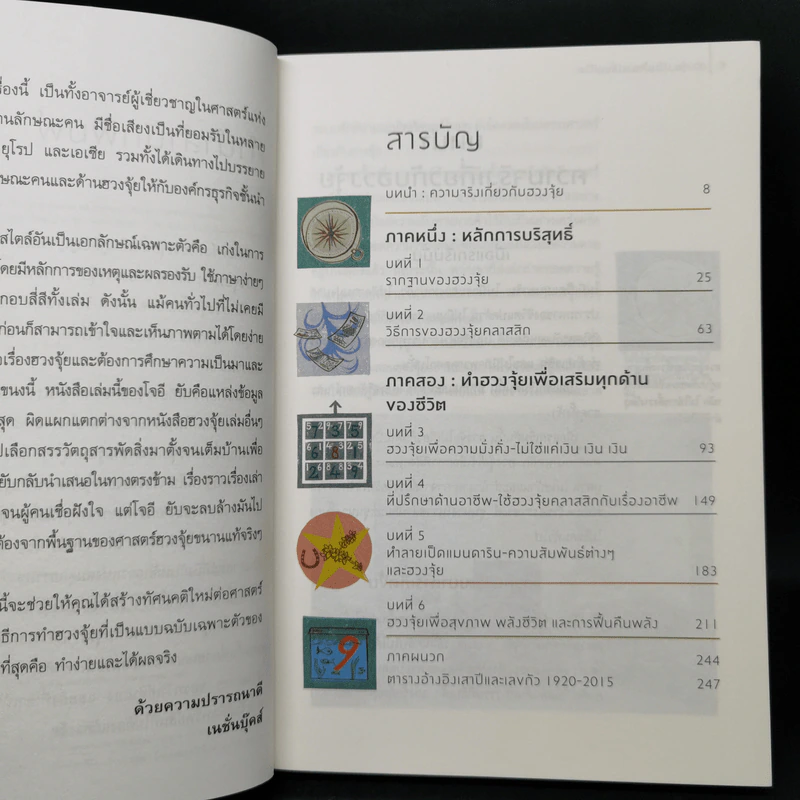 รื่องนี้ เป็นทั้งอาจารย์ผู้เชี่ยวชาญในศาสตร์แห่ง
านลักษณะคน มีชื่อเสียงเป็นที่ยอมรับในหลาย
ยุโรป และเอเชีย รวมทั้งได้เดินทางไปบรรยาย
กษณะคนและด้านฮวงจุ้ยให้กับองค์กรธุรกิจชั้นนำ
สไตล์อันเป็นเอกลักษณ์เฉพาะตัวคือ เก่งในการ
โดยมีหลักการของเหตุและผลรองรับ ใช้ภาษาง่ายๆ
กอบสี่สีทั้งเล่ม ดังนั้น แม้คนทั่วไปที่ไม่เคยมี
ก่อนก็สามารถเข้าใจและเห็นภาพตามได้โดยง่าย
งเรื่องฮวงจุ้ยและต้องการศึกษาความเป็นมาและ
ขนงนี้ หนังสือเล่มนี้ของโจอี ยับคือแหล่งข้อมูล
สุด ผิดแผกแตกต่างจากหนังสือฮวงจุ้ยเล่มอื่นๆ
ปเลือกสรรวัตถุสารพัดสิ่งมาตั้งจนเต็มบ้านเพื่อ
ยับกลับนำเสนอในทางตรงข้าม เรื่องราวเรื่องเล่า
จนผู้คนเชื่อฝังใจ แต่โจอี ยับจะลบล้างมันไป
ต้องจากพื้นฐานของศาสตร์ฮวงจุ้ยขนานแท้จริงๆ
นี้จะช่วยให้คุณได้สร้างทัศนคติใหม่ต่อศาสตร์
ธีการทำฮวงจุ้ยที่เป็นแบบฉบับเฉพาะตัวของ
ที่สุดคือ ทำง่ายและได้ผลจริง
ด้วยความปรารถนาดี
เนชั่นบุ๊คส์
สารบัญ
บทนำ : ความจริงเกี่ยวกับฮวงจุ้ย 8
ภาคหนึ่ง : หลักการบริสุทธิ์
บทที่ 1
รากฐานของฮวงจุ้ย 25
บทที่ 2
วิธีการของฮวงจุ้ยคลาสสิก 63
ภาคสอง : ทำฮวงจุ้ยเพื่อเสริมทุกด้าน
ของชีวิต
บทที่ 3
ฮวงจุ้ยเพื่อความมั่งคั่ง-ไม่ใช่แค่เงิน เงิน เงิน 93
บทที่ 4
ที่ปรึกษาด้านอาชีพ-ใช้ฮวงจุ้ยคลาสสิกกับเรื่องอาชีพ 149
บทที่ 5
ทำลายเป็ดแมนดาริน-ความสัมพันธ์ต่างๆ
และฮวงจุ้ย 183
บทที่ 6
ฮวงจุ้ยเพื่อสุขภาพ พลังชีวิต และการฟื้นคืนพลัง 211
ภาคผนวก 244
ตารางอ้างอิงเสาปีและเลขกัว 1920-2015 247
9